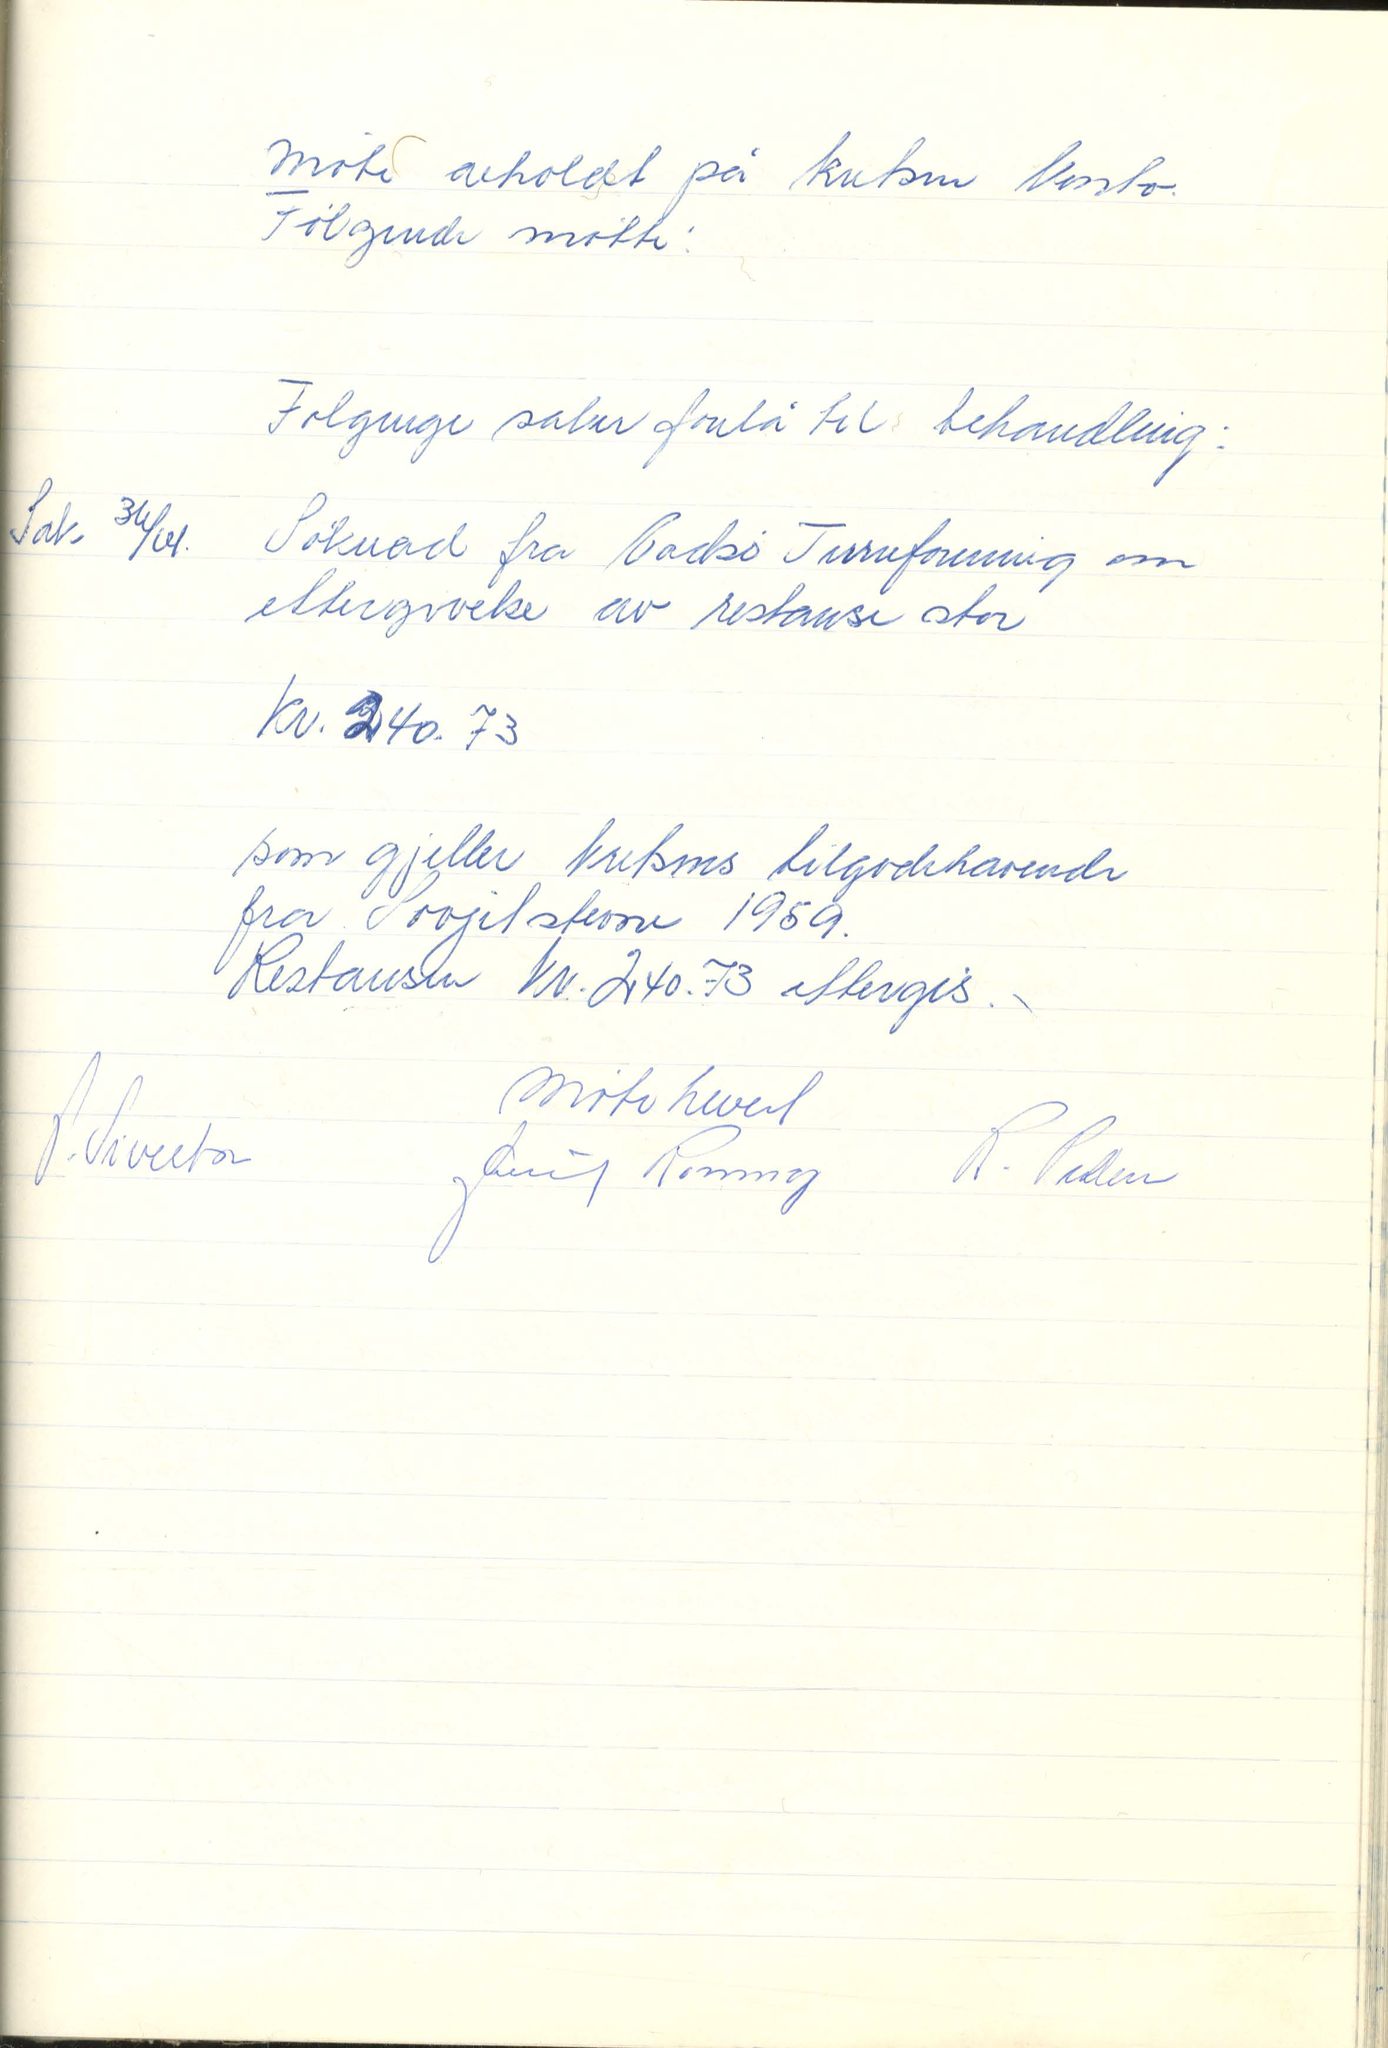 Møte avholdt på kretsen kontor.
Følgende møtte:
Følgenge saker forelå til behandling:
Sak. 34/61. Söknad fra Vadsö Turnforening om
ettergivelse av restanse stor
Kr. 240.73
som gjeller kretsens tilgodehavende
fra stevne 1959.
Restansen kr. 240.73 ettergis.
Møte hevet
R. Pedersen